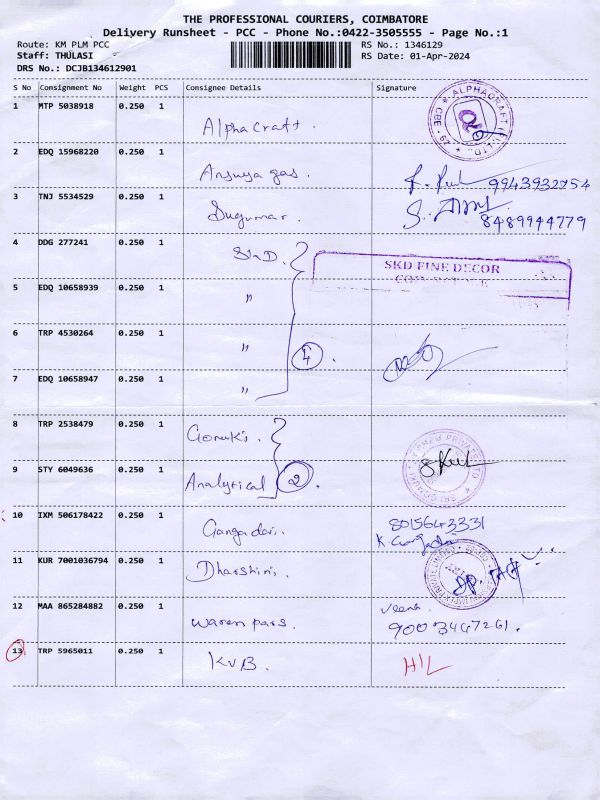 THE PROFESSIONAL COURIERS, COIMBATORE
Delivery Runsheet - PCC - Phone No.:0422-3505555 - Page No.:1
Route: KM PLM PCC RS No.: 1346129
Staff: THULASI RS Date: 01-Apr-2024
DRS No.: DCJB134612901
S No Consignment No Weight PCS Consignee Details Signature
1 MTP 5038918 0.250 1 Alpha Craft.
2 EDQ 15968220 0.250 1 Ansuya gas. 9943932754
3 TNJ 5534529 0.250 1 Sugumar. 8489944779
4 DDG 277241 0.250 1 SKD. SKD FINE DECOR
5 EDQ 10658939 0.250 1 〃
6 TRP 4530264 0.250 1 〃 4.
7 EDQ 10658947 0.250 1 〃
8 TRP 2538479 0.250 1
9 STY 6049636 0.250 1 Analytical 2.
10 IXM 506178422 0.250 1 Ganga devi. 8015643331
11 KUR 7001036794 0.250 1 Dharshini.
12 MAA 865284882 0.250 1 Waren pars. Veena.
9003467261.
13 TRP 5965011 0.250 1 KVB. HIL